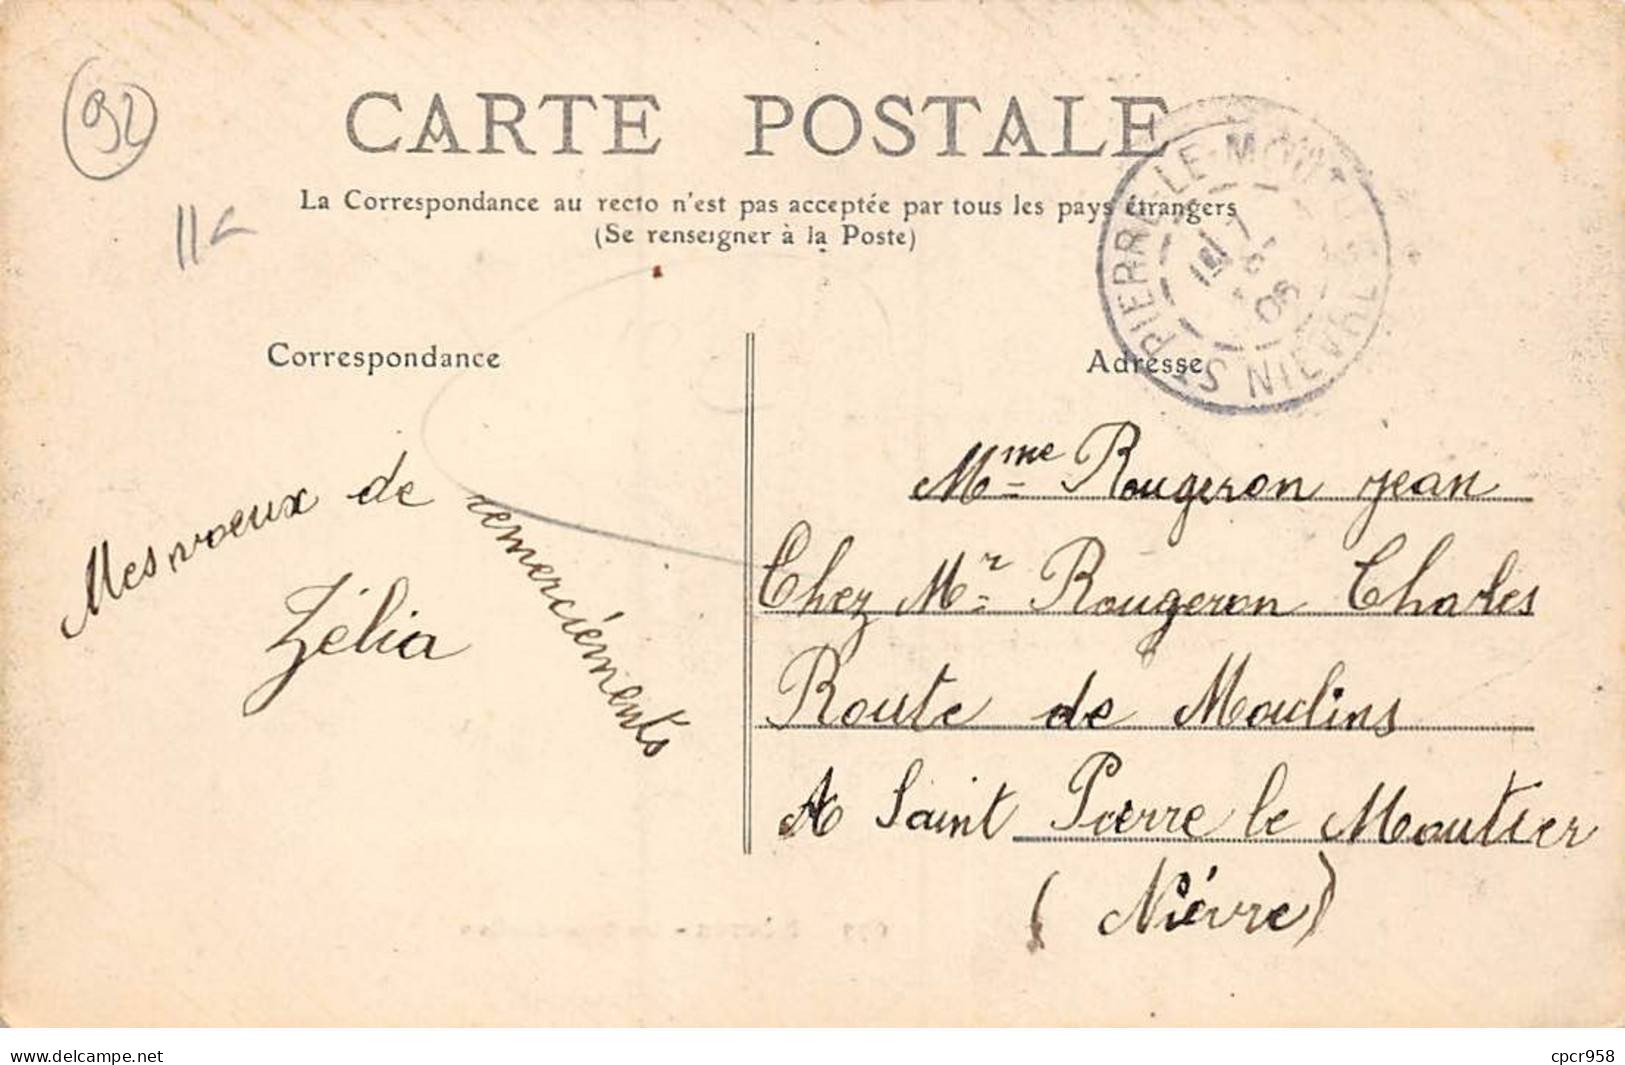 92
CARTE POSTALE
La Correspondance au recto n'est pas acceptée par tous les pays étrangers
(Se renseigner à la Poste)
ST PIERRE-LE-MOUTIER
NIÈVRE
Correspondance
Adresse
Mes voeux de remerciéments
Zélia
Mme Rougeron jean
Chez Mr Rougeron Charles
Route de Moulins
A Saint Pierre le Moutier
(Nièvre)
www.delcampe.net
cpcr958